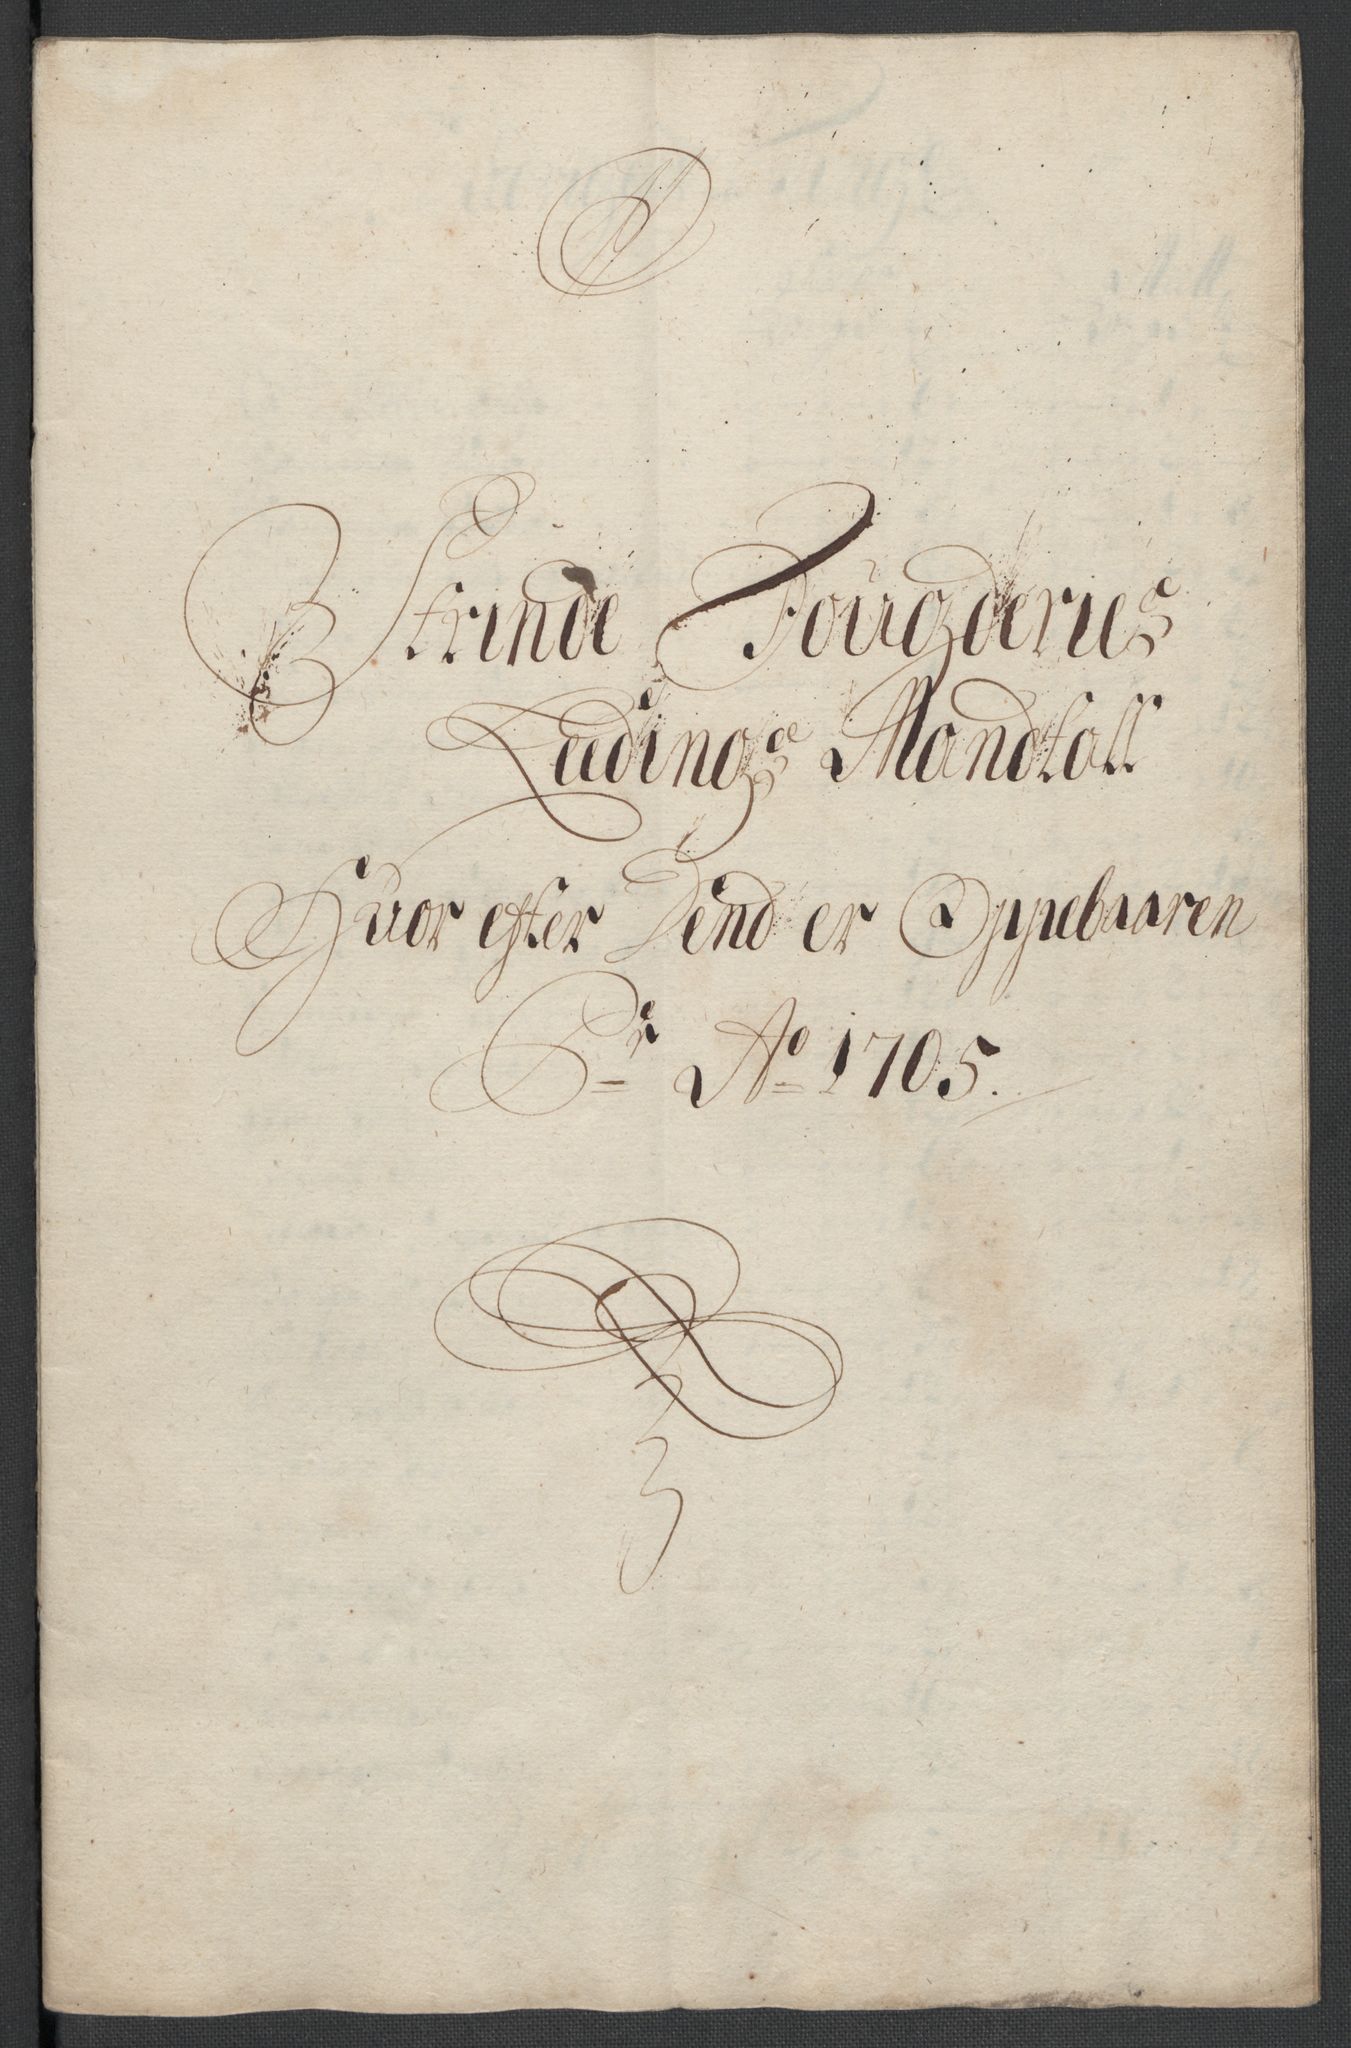 Strinde Fougderies
Leedings Mandtall
Huor efter Dend er Oppebaaren
Pr Ao 1705.